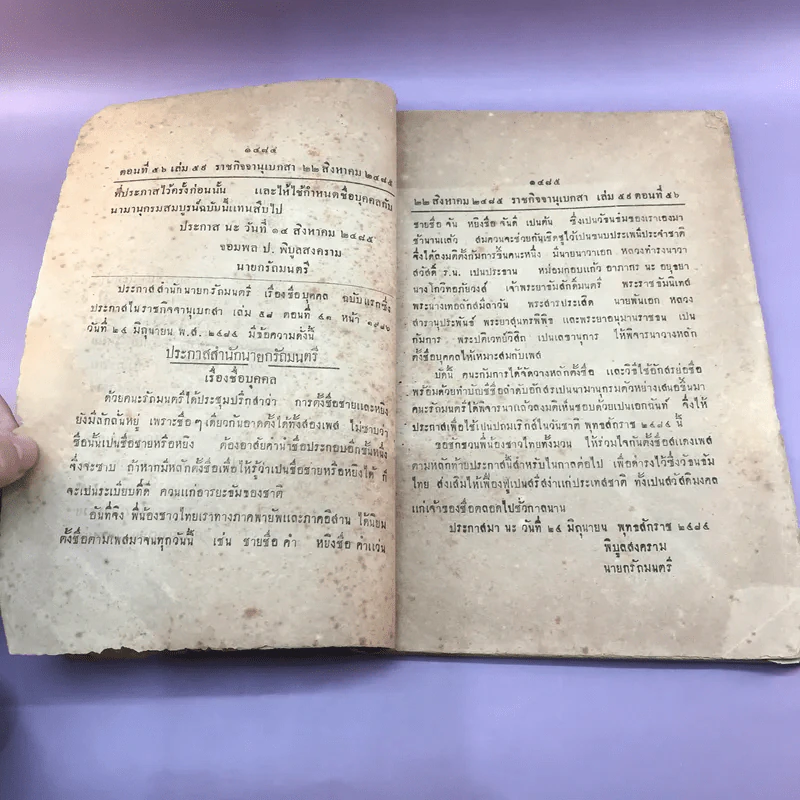 ๑๔๘๔
ตอนที่ ๕๖ เล่ม ๕๙ ราชกิจจานุเบกสา ๒๒ สิงหาคม ๒๔๘๕
ที่ประกาสไว้ครั้งก่อนนั้น และไห้ไช้กำหนดชื่อบุคคลกับ
นามานุกรมสมบูรน์ฉบับนี้แทนสืบไป
ประกาส นะ วันที่ ๑๔ สิงหาคม ๒๔๘๕
จอมพล ป. พิบูลสงคราม
นายกรัถมนตรี
ประกาสสำนักนายกรัถมนตรี เรื่องชื่อบุคคล ฉบับแรกซึ่ง
ประกาสในราชกิจจานุเบกสา เล่ม ๕๘ ตอนที่ ๔๑ หน้า ๑๙๘๖
วันที่ ๒๔ มิถุนายน พ.ส. ๒๔๘๔ มีข้อความดั่งนี้
ประกาสสำนักนายกรัถมนตรี
เรื่องชื่อบุคคล
ด้วยคนะรัถมนตรีได้ประชุมปรึกสาว่า การตั้งชื่อชายและหยิง
ยังมีลักลั่นหยู่ เพราะชื่อๆ เดียวกันอาดตั้งได้ทั้งสองเพส ไม่ซาบว่า
ชื่อนั้นเป็นชื่อชายหรือหยิง ต้องอาสัยคำนำชื่อประกอบอีกชั้นหนึ่ง
จึ่งจะซาบ ถ้าหากมีหลักตั้งชื่อเพื่อไห้รู้ว่าเป็นชื่อชายหรือหยิงได้ ก็
จะเป็นระเบียบที่ดี ควนแก่อารยะธัมของชาติ
อันที่จิง พี่น้องชาวไทยเราทางภาคพายัพและภาคอีสาน ได้นิยม
ตั้งชื่อตามเพสมาจนทุกวันนี้ เช่น ชายชื่อ คำ หยิงชื่อ คำแว่น
๑๔๘๕
๒๒ สิงหาคม ๒๔๘๕ ราชกิจจานุเบกสา เล่ม ๕๙ ตอนที่ ๕๖
ชายชื่อ จัน หยิงชื่อ จันดี เป็นต้น ซึ่งเป็นวัธนธัมของเราเองมา
ช้านานแล้ว สมควนจะช่วยกันเชิดชูไว้เป็นขนบประเพนีประจำชาติ
จึ่งได้ลงมติตั้งกัมการขึ้นคนะหนึ่ง มีนายนาวาเอก หลวงธำรงนาวา
สวัสดิ์ ร.น. เป็นประธาน หม่อมกอบแก้ว อาภากร นะ อยุธยา
นางโกวิทอภัยวงส์ เจ้าพระยาธัมสักดิ์มนตรี พระราชธัมนิเทส
พระนางเทอลักสมีลาวัน พระสารประเสิด นายพันเอก หลวง
สารานุประพันธ์ พระยาสุนทรพิพิธ และพระยาอนุมานราชธน เป็น
กัมการ พระปติเวทย์วิสิถ เป็นเลขานุการ ไห้พิจารนาวางหลัก
ตั้งชื่อบุคคลไห้เหมาะสมกับเพส
บัดนี้ คนะกัมการได้จัดวางหลักตั้งชื่อ และวิธีไช้อักสรย่อชื่อ
พร้อมด้วยทำบัญชีชื่อลำดับอักสรเป็นนามานุกรมตัวหย่างเสนอขึ้นมา
คนะรัถมนตรีได้พิจารนาแล้วลงมติเห็นชอบด้วยเป็นเอกฉันท์ จึ่งไห้
ประกาสเพื่อไช้เป็นปถมเริกส์ไนวันชาติ พุทธสักราช ๒๔๘๔ นี้
ขอชักชวนพี่น้องชาวไทยทั้งมวน ไห้ร่วมไจกันตั้งชื่อสแดงเพส
ตามหลักท้ายประกาสนี้สำหรับไนกาลต่อไป เพื่อดำรงไว้ซึ่งวัธนธัม
ไทย ส่งเสิมไห้เฟื่องฟูเปนสรีสง่าแก่ประเทสชาติ ทั้งเปนสวัสดิมงคล
แก่เจ้าของชื่อตลอดไปชั่วกาลนาน
ประกาสมา นะ วันที่ ๒๔ มิถุนายน พุทธสักราช ๒๔๘๔
พิบูลสงคราม
นายกรัถมนตรี